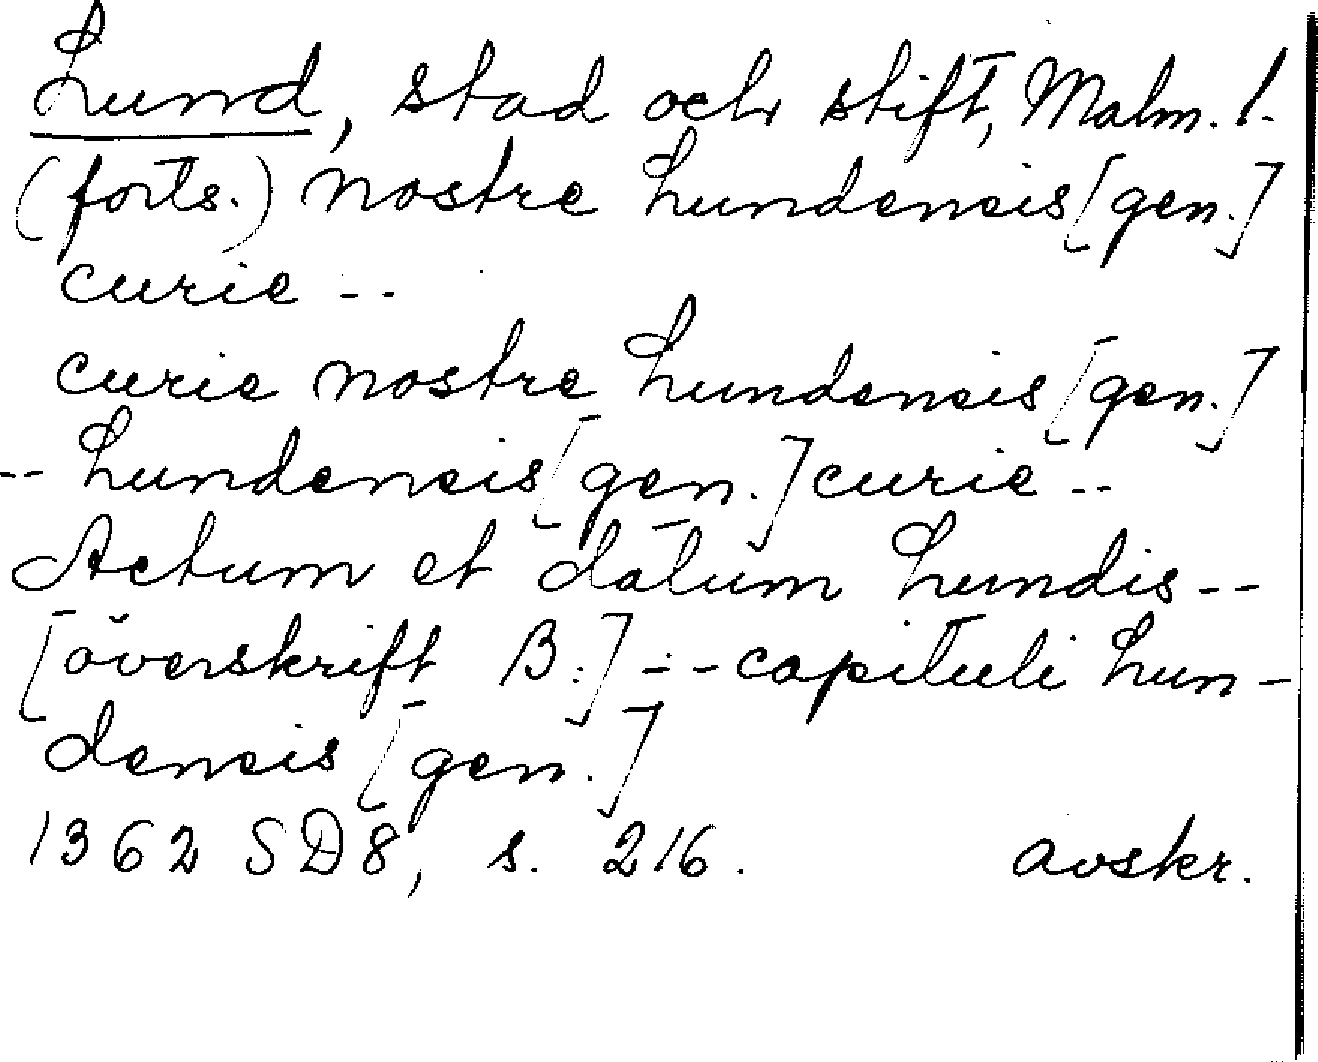 Lund, stad och stift, Malm. l.
(forts.) nostre Lundensis [gen.]
curie --
curie nostre Lundensis [gen.]
-- Lundensis [gen.] curie --
Actum et datum Lundis --
[överskrift B:] -- capituli Lun-
densis [gen.]
1362 SD8, s. 216. avskr.